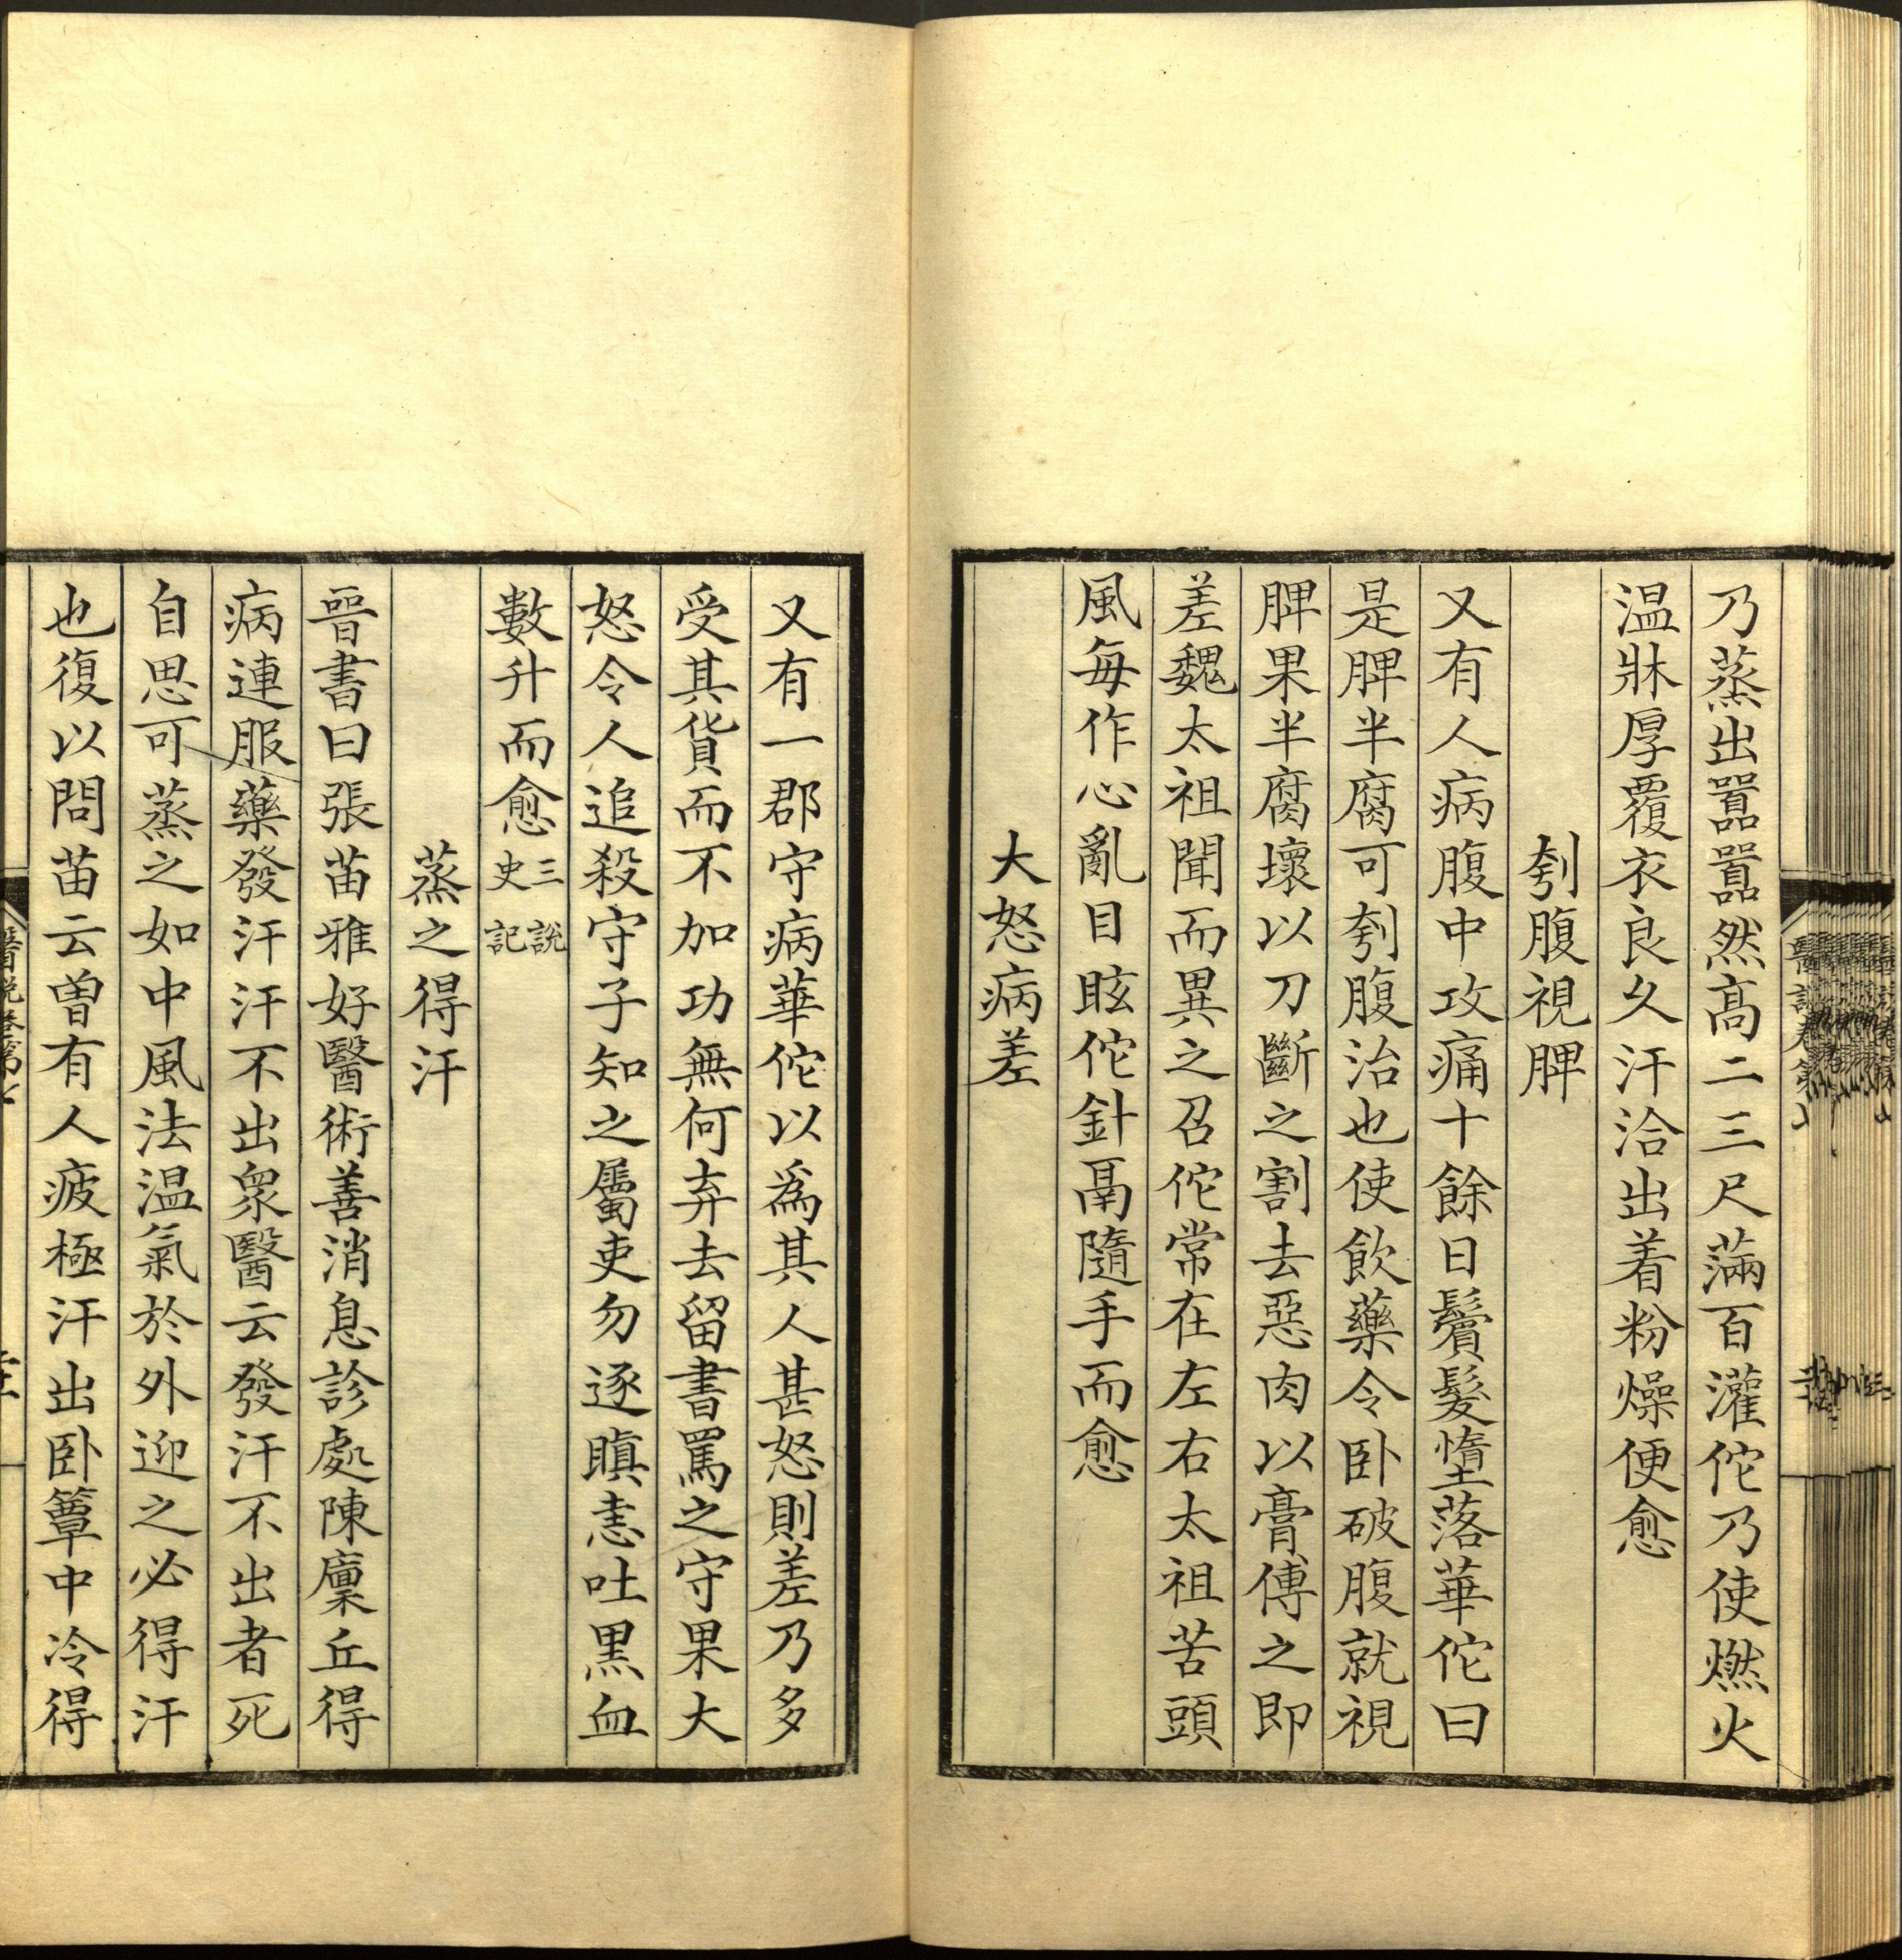 乃蒸出嚣嚣然高二三尺滿百灌佗乃使燃火
温牀厚覆衣良久汗洽出着粉燥便愈
刳腹視脾
又有人病腹中攻痛十餘日鬢髮墮落華佗曰
是脾半腐可刳腹治也使飲藥令卧破腹就視
脾果半腐壞以刀斷之割去惡肉以膏傅之即
差魏太祖聞而異之召佗常在左右太祖苦頭
風每作心亂目眩佗針鬲隨手而愈
大怒病差
又有一郡守病華佗以爲其人甚怒則差乃多
受其貨而不加功無何弃去留書罵之守果大
怒令人追殺守子知之屬吏勿逐瞋恚吐黑血
數升而愈三說史記
蒸之得汗
晉書曰張苗雅好醫術善消息診處陳廩丘得
病連服藥發汗汗不出衆醫云發汗不出者死
自思可蒸之如中風法温氣於外迎之必得汗
也復以問苗云曾有人疲極汗出卧簟中冷得
醫說卷第七